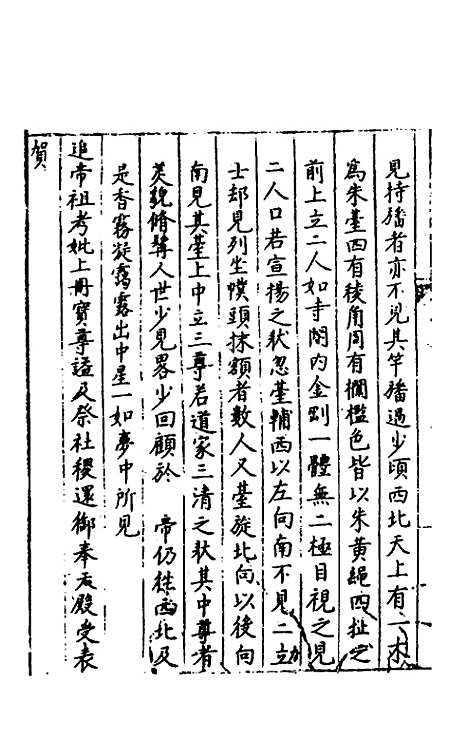 見持旛者亦不見其竿旛過少頃西北天上有一木
為朱臺四有稜角周有欄檻色皆以朱黃繩四扯之
前上立二人如寺閣內金剛一體無二極目視之見
二人口若宣揚之狀忽臺輔西以左向南不見二立
士却見列坐幞頭抹額者數人又臺旋北向以後向
南見其臺上中立三尊若道家三清之狀其中尊者
美貌脩髯人世少見畧少回顧於　帝仍徃西北及
是香霧凝靄靄出中星一如夢中所見
追帝祖考妣上冊寶尊謚及祭社稷還御奉天殿受表
賀